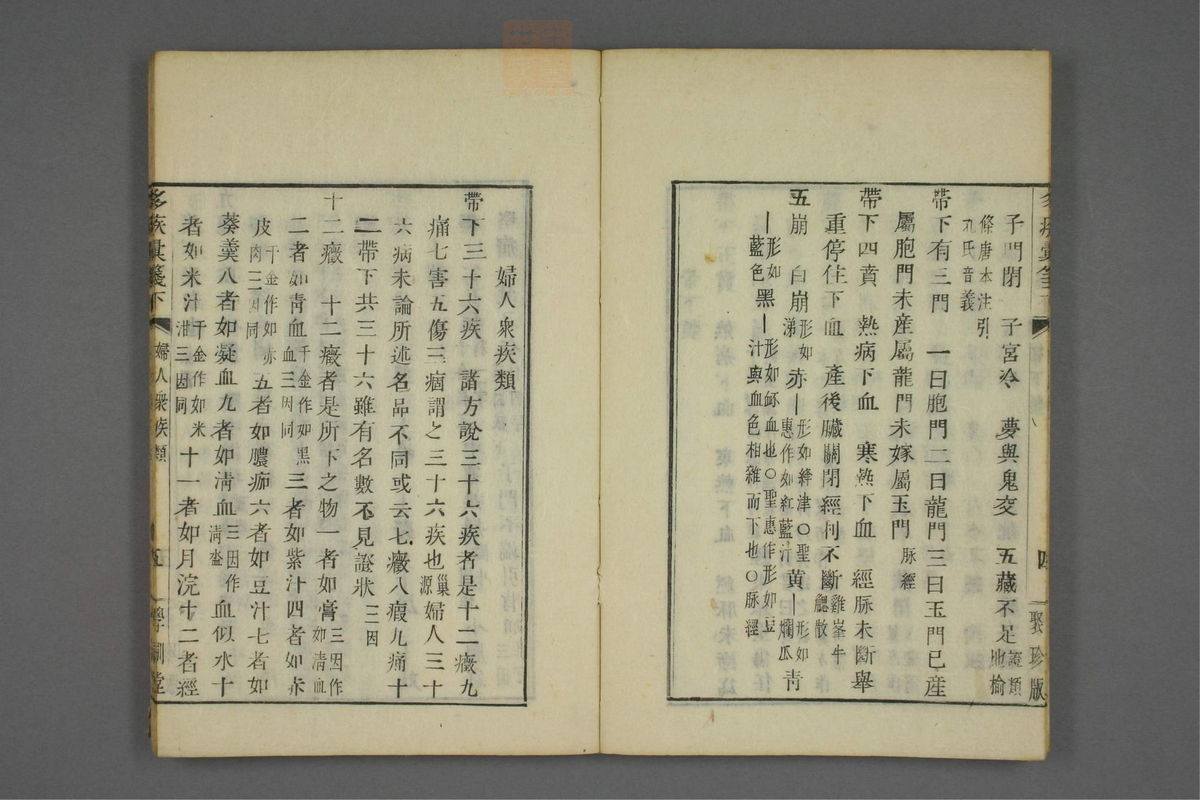 子門閉　子宮冷　夢與鬼交　五藏不足證類地榆
條唐本注引
亢氏音義
帶下有三門　一曰胞門二曰龍門三曰玉門已產
屬胞門未產屬龍門未嫁屬玉門脉經
帶下四賁　熱病下血　寒熱下血　經脉未斷舉
重停住下血　產後臟關閉經利不斷雞峯牛髓散
五崩　白崩形如涕赤―形如絳津○聖惠作如紅藍汁黄―形如爛瓜靑
―形如藍色黑―形如衃血也○聖惠作形如豆汁與血色相雜而下也○脉經
四
聚珍版
婦人衆疾類
帶下三十六疾　諸方說三十六疾者是十二癥九
痛七害五傷三痼謂之三十六疾也巢源婦人三十
六病未論所述名品不同或云七癥八瘕九痛十
二帶下共三十六雖有名數不見證狀三因
十二癥　十二癥者是所下之物一者如膏三因作如清血
二者如靑血千金作如黑血三因同三者如紫汁四者如赤
皮千金作如赤肉三因同五者如膿痂六者如豆汁七者如
葵羹八者如凝血九者如淸血三因作淸盎血似水十
者如米汁千金作如米泔三因同十一者如月浣十二者經
多疾彙箋下
婦人衆疾類
五
學訓堂